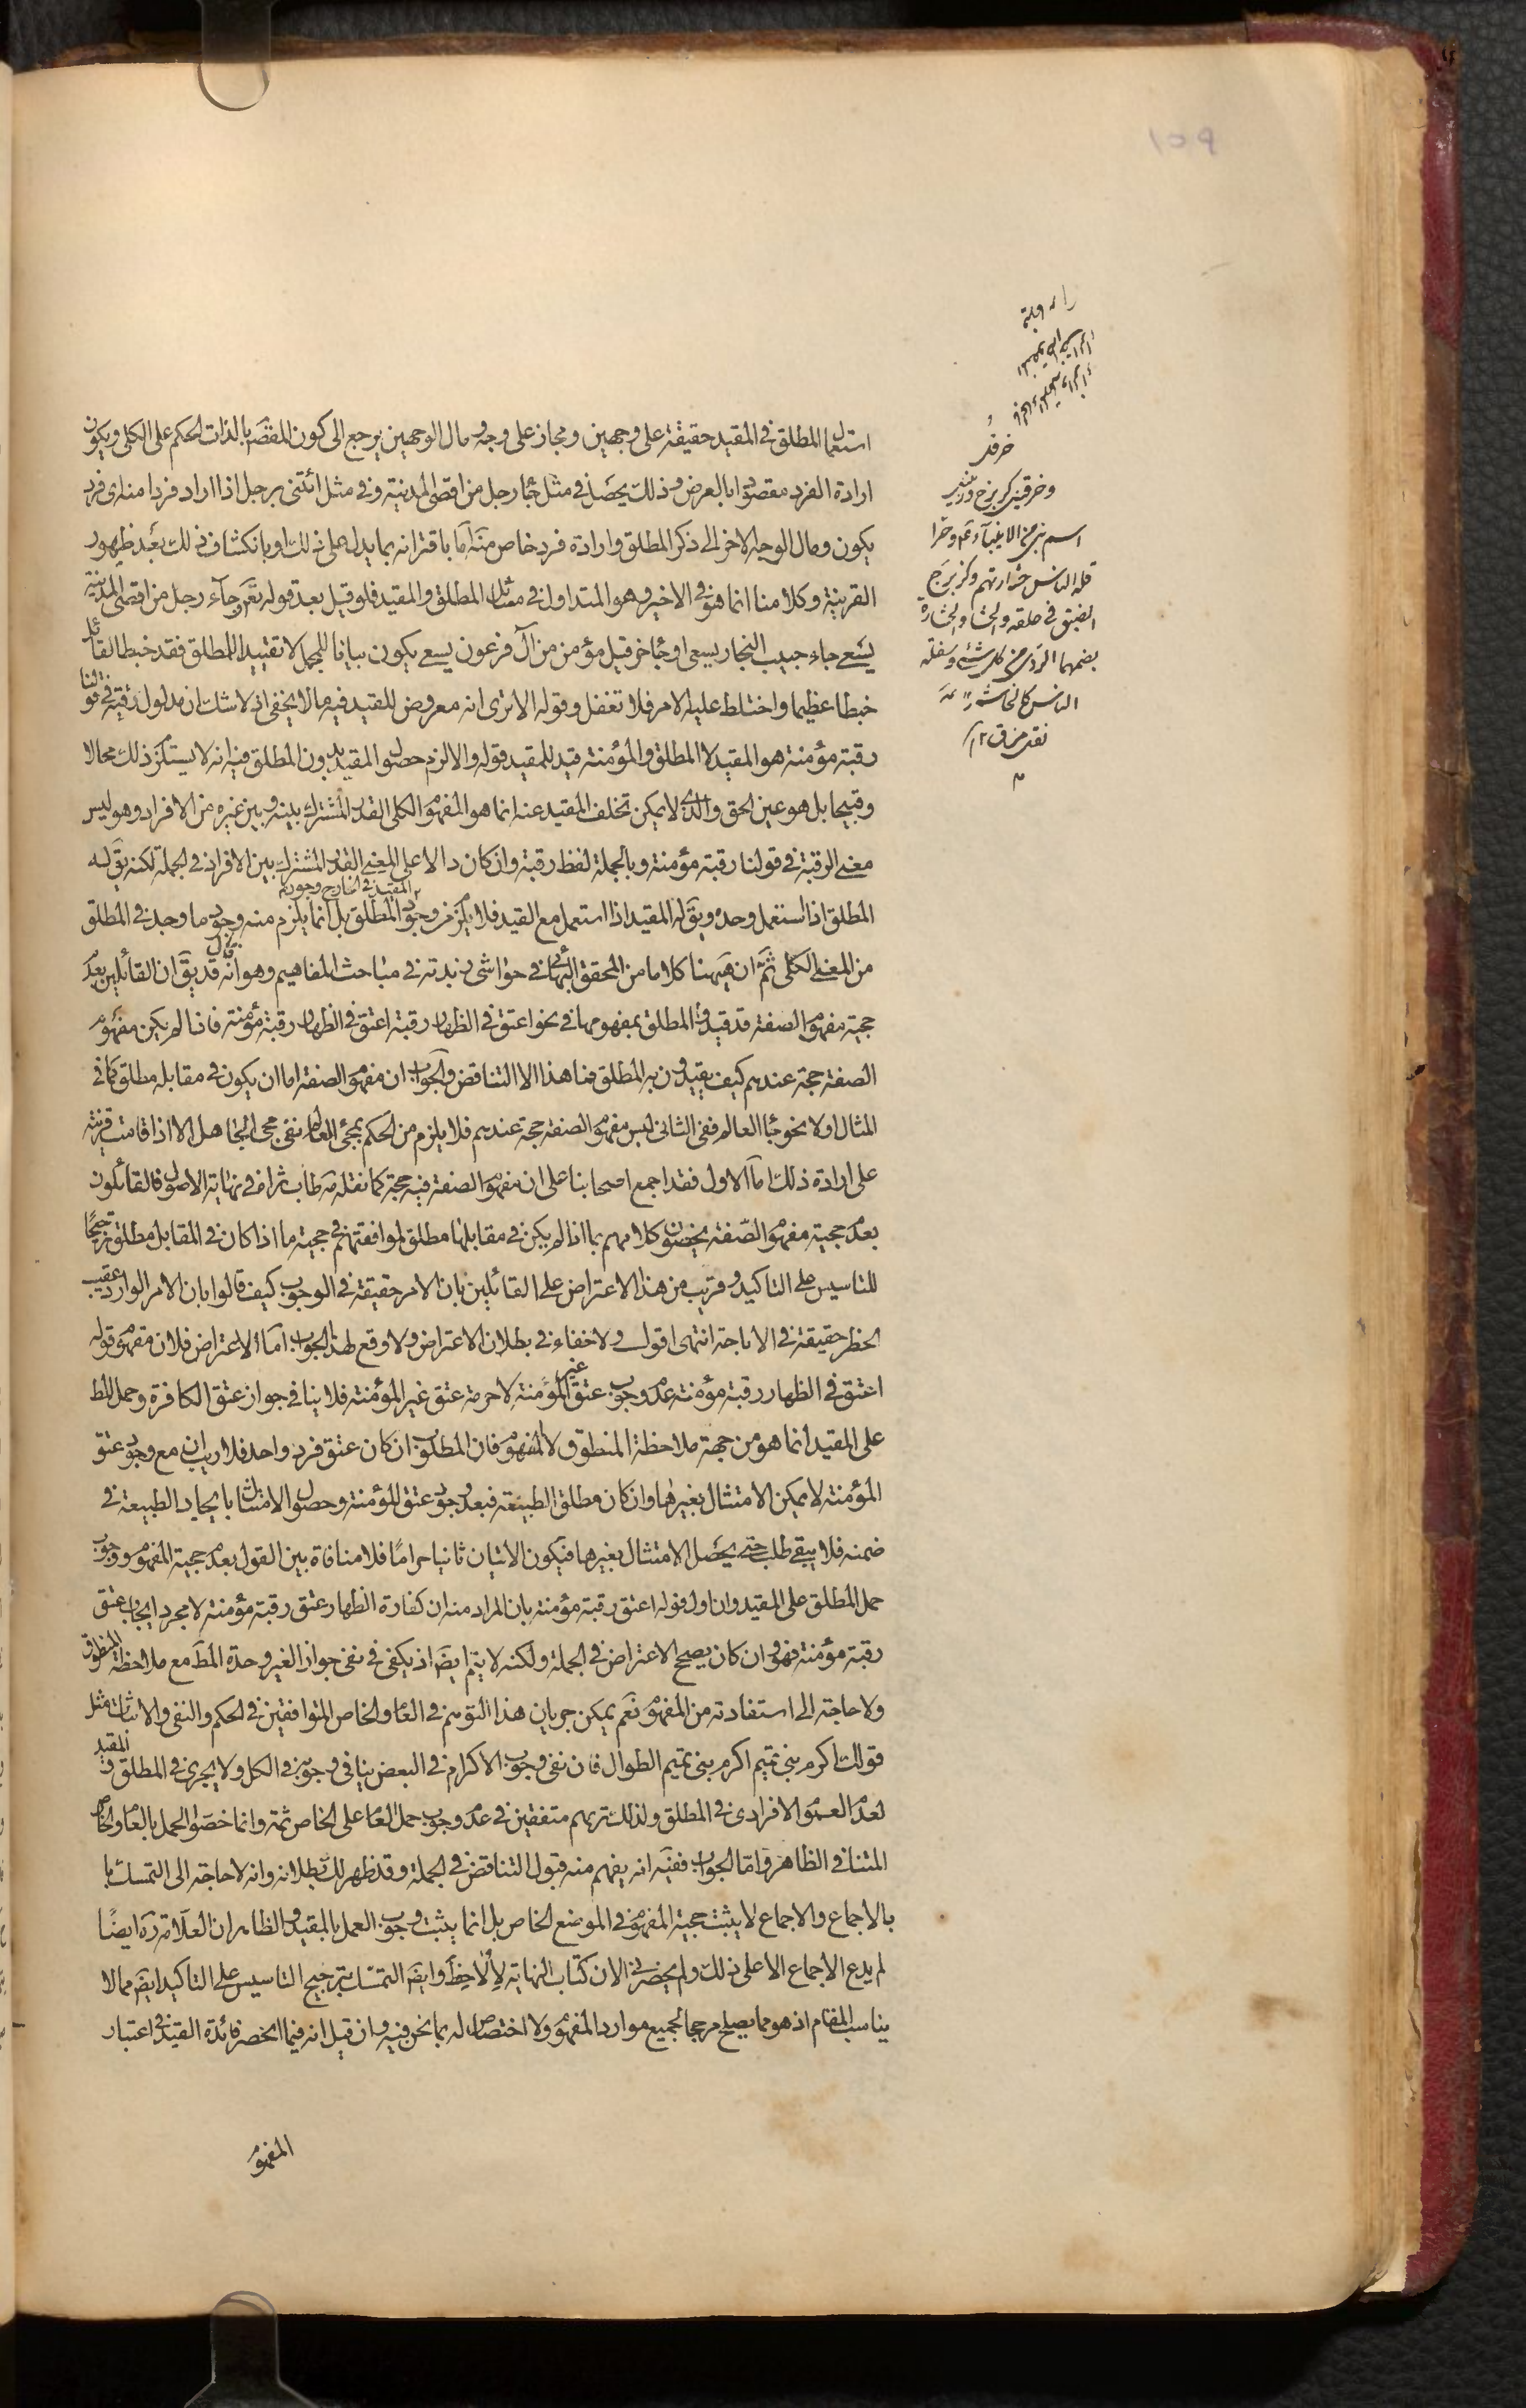 ١٥٩
خرقيل
وخرقيل كزبرج وزنبيل
اسم نبي من الانبيآء عم وخرا
الضيق في خلقه والحشار والحشارة
بضمهما الردى من كل شئ وسفلة
الناس كالخاشر
نقل من ق ١٢
استعمال المطلق في المقيد حقيقة على وجهين ومجاز على وجه ومال الوجهين يرجع الى كون المقصَ بالذات الحكم على الكلى ويكون
ارادة الفرد مقصودا بالعرض وذلك يحصل في مثل جاء رجل من اقصى المدينة وفي مثل ائتنى برجل اذا اراد فردا منه اى فرد
يكون ومال الوجه الاخر الى ذكر المطلق وارادة فرد خاص منه اما باقترانه بما يدل على ذلك او بانكشاف ذلك بعد ظهور
القرينة وكلامنا انما هو في الاخير وهو المتداول في مسائل المطلق والمقيد فلو قيل بعد قوله تعَ وجآء رجل من اقصى المدينة
يسعى جاء حبيب النجار يسعى او جاء خرقيل مؤمن من آل فرعون يسعى يكون بيانا للمجمل لا تقييدا للمطلق فقد خبط القائل
خبطا عظيما واختلط عليه الامر فلا تغفل وقوله الا ترى انه معروض للقيد فيه ما لا يخفى اذ لا شك ان مدلول رقبة في قولنا
رقبة مؤمنة هو المقيد لا المطلق والمؤمنة قيد للمقيد قوله والا لزم حصول المقيد بدون المطلق فيه انه لا يستلزم ذلك محالا
وقبيحا بل هو عين الحق والذى لا يمكن تخلف المقيد عنه انما هو المفهوم الكلى القدر المشترك بينه وبين غيره من الافراد وهو ليس
معنى الرقبة في قولنا رقبة مؤمنة وبالجملة لفظ رقبة وان كان دالا على المعنى القدر المشترك بين الافراد في الجملة لكنه يقَ له
المطلق اذا استعمل وحده ويقَ له المقيد اذا استعمل مع القيد فلا يلزم من وجود المقيد في الخارج وجود المطلق بل انما يلزم منه وجود ما وجد في المطلق
من المعنى الكلى ثمّ ان ههنا كلاما من المحقق البهائي في حواشى زبدته في مباحث المفاهيم وهو انه قال قد يقَ ان القائلين بعدم
حجية مفهوم الصفة قد قيدوا المطلق بمفهومها في نحو اعتق في الظهار رقبة اعتق في الظهار رقبة مؤمنة فاذا لم يكن مفهوم
الصفة حجة عندهم كيف يقيدون به المطلق فما هذا الا التناقض والجواب ان مفهوم الصفة اما ان يكون في مقابله مطلق كما في
المثال او لا نحو جاء العالم ففي الثانى ليس مفهوم الصفة حجة عندهم فلا يلزم من الحكم بمجئ العالم نفى مجئ الجاهل الا اذا قامت قرينة
على ارادة ذلك اما الاول فقد اجمع اصحابنا على ان مفهوم الصفة فيه حجة كما نقله مه طاب ثراه في نهاية الاصول فالقائلون
بعدم حجية مفهوم الصّفة يخصون كلامهم بما اذا لم يكن في مقابلها مطلق لموافقتهم في حجية ما اذا كان في المقابل مطلق ترجيحًا
للتاسيس على التاكيد وقريب من هذا الاعتراض على القائلين بان الامر حقيقة في الوجوب كيف قالوا بان الامر الوارد عقيب
الحظر حقيقة في الاباحة انتهى اقول ولا خفاء في بطلان الاعتراض ولا وقع لهذا الجواب اما الاعتراض فلان مفهوم قوله
اعتق في الظهار رقبة مؤمنة عدم وجوب عتق غير المؤمنة لا حرمة عتق غير المؤمنة فلا ينافي جواز عتق الكافرة وحمل المط
على المقيد انما هو من جهة ملاحظة المنطوق لا المفهوم فان المطلوب ان كان عتق فرد واحد فلا ريب ان مع وجوب عتق
المؤمنة لا يمكن الامتثال بغيرها وان كان مطلق الطبيعة فبعد وجوب عتق المؤمنة وحصول الامتثال بايجاد الطبيعة في
ضمنه فلا يبقى طلب حتى يحصل الامتثال بغيرها فيكون الاتيان ثانيا حرامًا فلا منافاة بين القول بعدم حجية المفهوم ووجوب
حمل المطلق على المقيد وان اول قوله اعتق رقبة مؤمنة بان المراد منه ان كفارة الظهار عتق رقبة مؤمنة لا مجرد ايجاب عتق
رقبة مؤمنة فهو وان كان يصحح الاعتراض في الجملة ولكنه لا يتم ايضَ اذ يكفى في نفى جواز الغير وحدة المطَ مع ملاحظة المنطوق
ولا حاجة الى استفادته من المفهوم نعم يمكن جريان هذا التوهم في العام والخاص المتوافقين في الحكم والنفى والاثبات مثل
قولك اكرم بنى تميم اكرم بنى تميم الطوال فان نفى وجوب الاكرام في البعض ينافي وجوبه في الكل ولا يجرى في المطلق والمقيد
لعدم العموم الافرادى في المطلق ولذلك تريهم متفقين في عدم وجوب حمل العام على الخاص ثمة وانما خصّوا الحمل بالعام والخاص
المتنافي الظاهر واما الجواب ففيه انه يفهم منه قبول التناقض في الجملة وقد ظهر لك بطلانه وانه لا حاجة الى التمسك با
بالاجماع والاجماع لا يثبت حجية المفهوم في الموضع الخاص بل انما يثبت وجوب العمل بالمقيد والظاهر ان العلامة ره ايضًا
لم يدع الاجماع الا على ذلك ولم يحضرنى الان كتاب النهاية لألاحظ وايضَ التمسك بترجيح التاسيس على التاكيد ايضَ مما لا
يناسب المقام اذ هو مما يصلح مرجحا لجميع موارد المفهوم ولا اختصاص له بما نحن فيه وان قيل انه فيما انحصر فائدة القيد في اعتبار
المفهوم